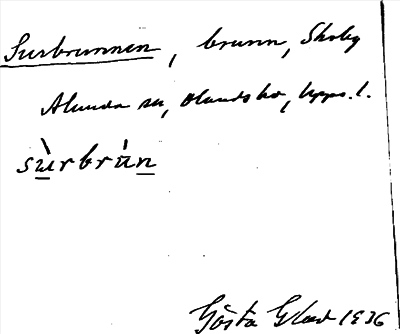 Surbrunnen, brunn, Skoby
Alunda sn, Olands hd, Upps. l.
sùrbrùn
Gösta Glad 1936